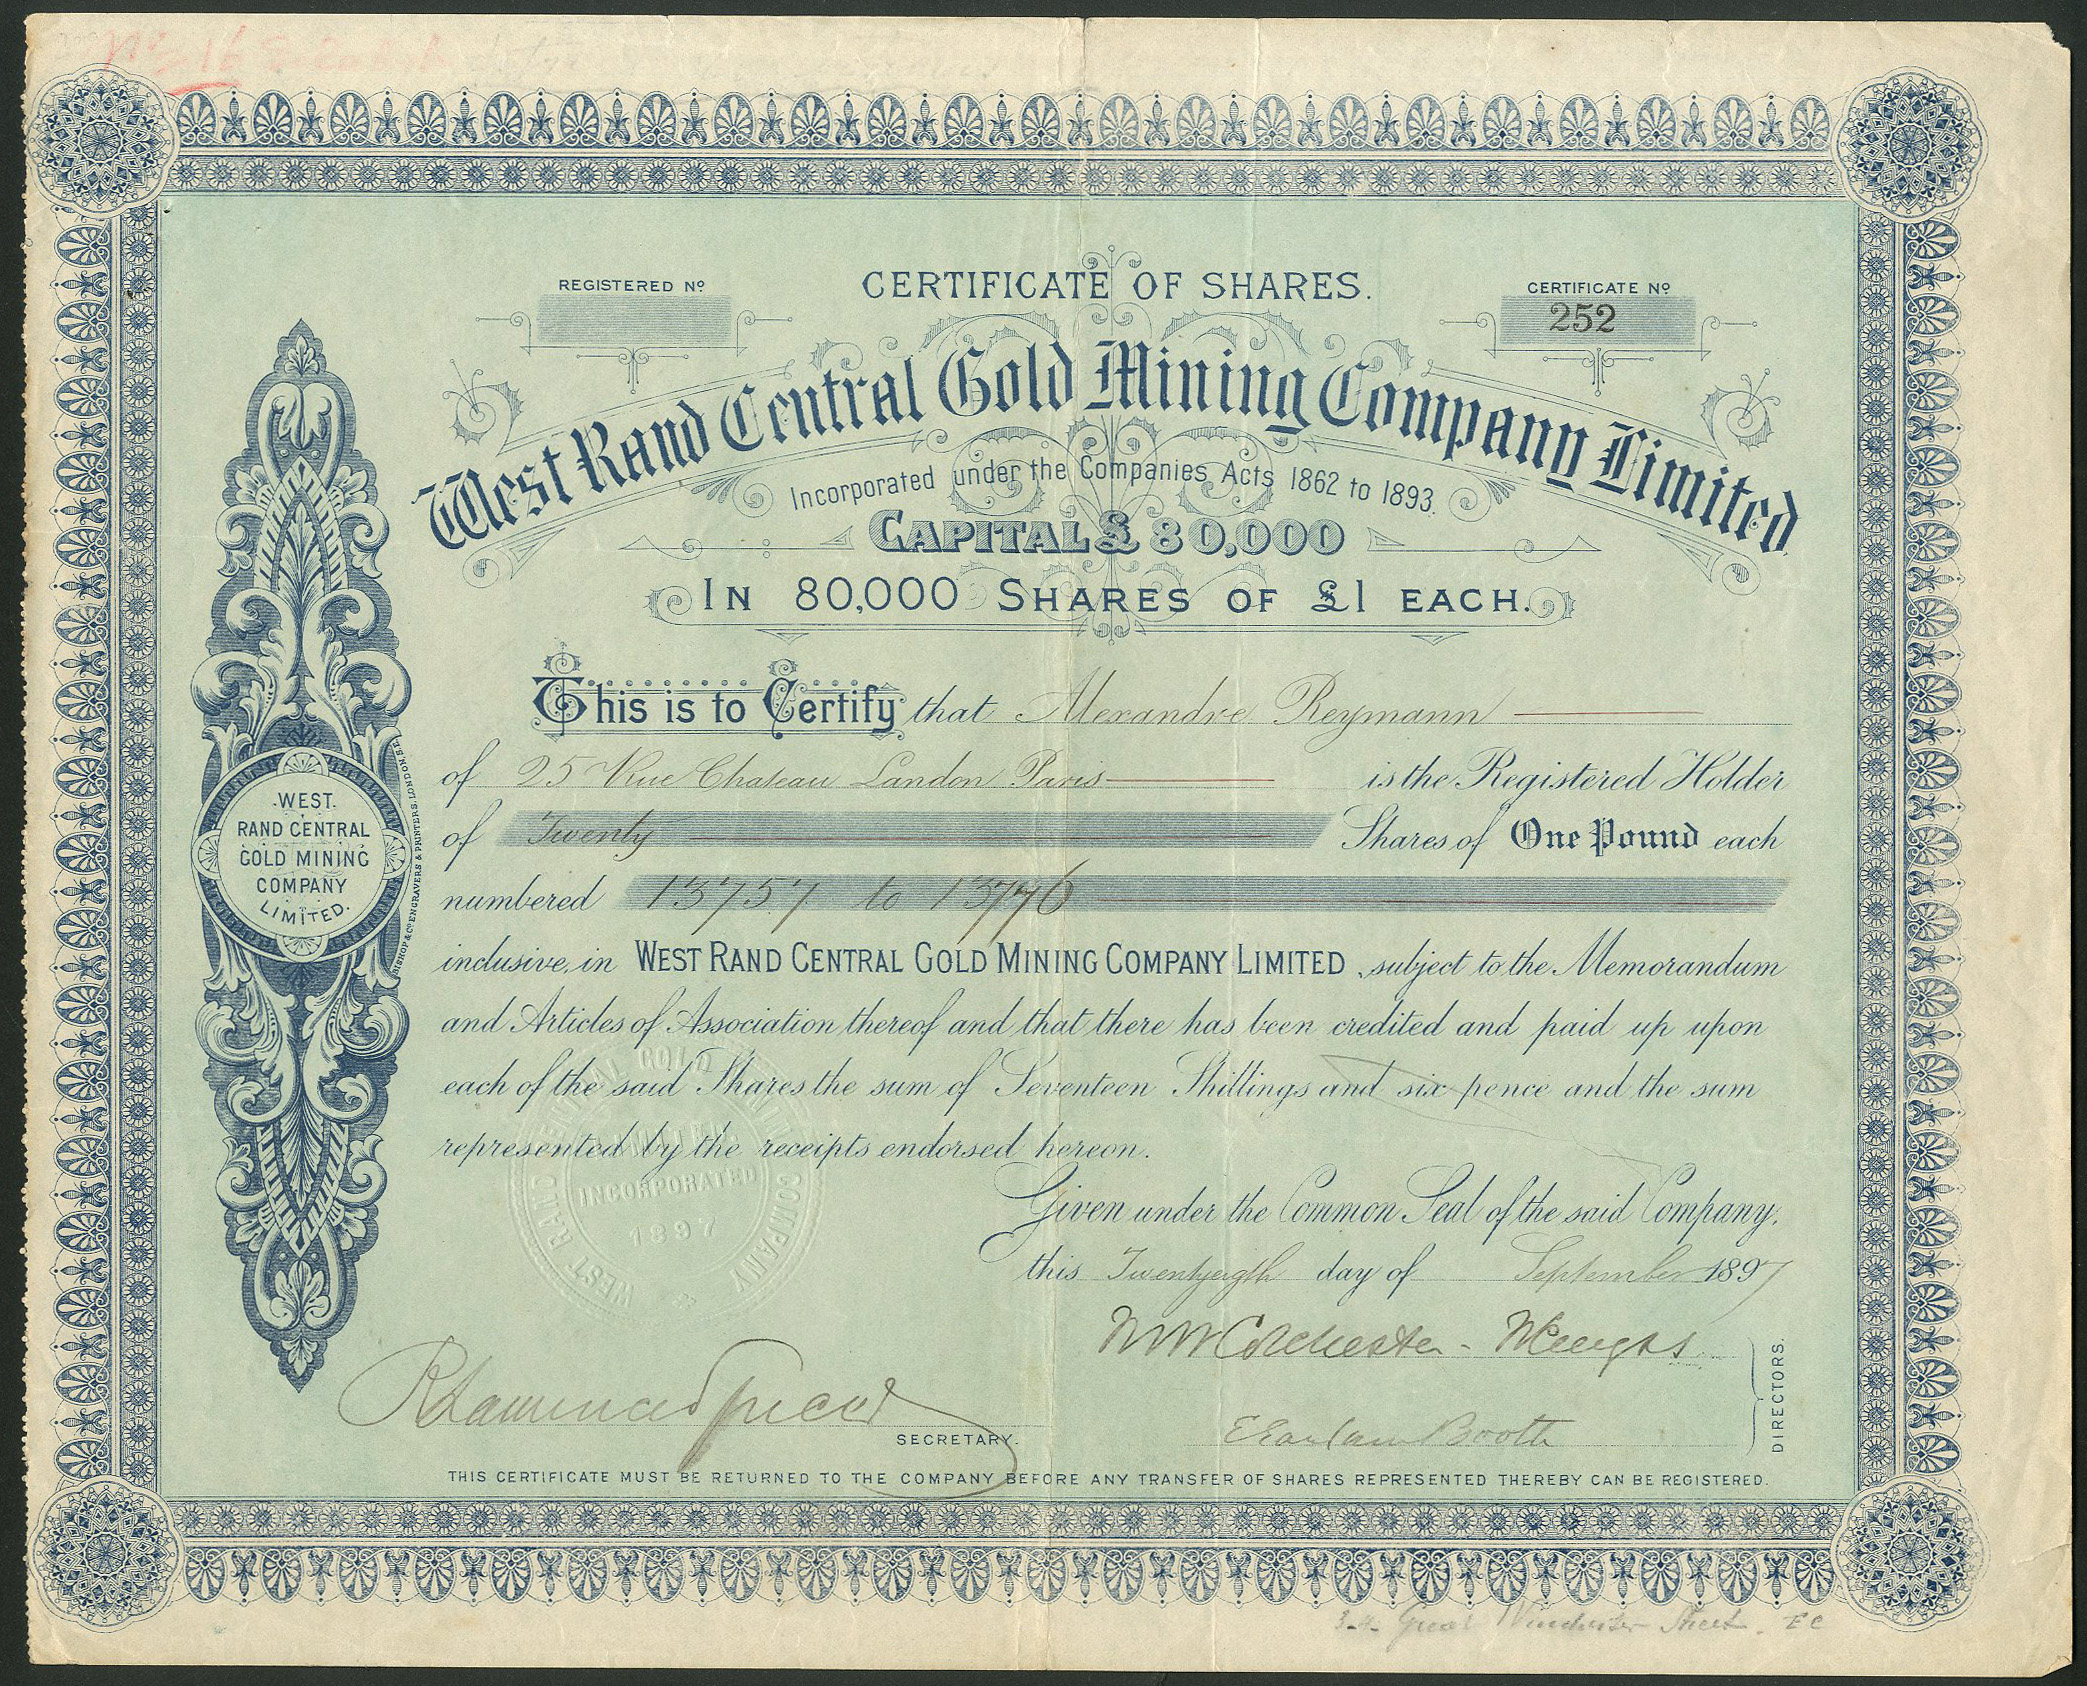 Nº 16
REGISTERED Nº
CERTIFICATE OF SHARES.
CERTIFICATE Nº
252
West Rand Central Gold Mining Company Limited
Incorporated under the Companies Acts 1862 to 1893.
CAPITAL £80,000
IN 80,000 SHARES OF £1 EACH.
This is to Certify that Alexandre Reymann
of 25 Rue Chateau Landon Paris is the Registered Holder
of Twenty Shares of One Pound each
numbered 13757 to 13776
inclusive, in WEST RAND CENTRAL GOLD MINING COMPANY LIMITED, subject to the Memorandum
and Articles of Association thereof and that there has been credited and paid up upon
each of the said Shares the sum of Seventeen Shillings and six pence and the sum
represented by the receipts endorsed hereon.
Given under the Common Seal of the said Company,
this Twentyeigth day of September 1897
WEST RAND CENTRAL GOLD MINING COMPANY
LIMITED
INCORPORATED
1897
SECRETARY.
Booth
DIRECTORS.
THIS CERTIFICATE MUST BE RETURNED TO THE COMPANY BEFORE ANY TRANSFER OF SHARES REPRESENTED THEREBY CAN BE REGISTERED.
WEST
RAND CENTRAL
GOLD MINING
COMPANY
LIMITED.
BISHOP & Cº ENGRAVERS & PRINTERS. LONDON. S.E.
3-4- Great Winchester Street. EC